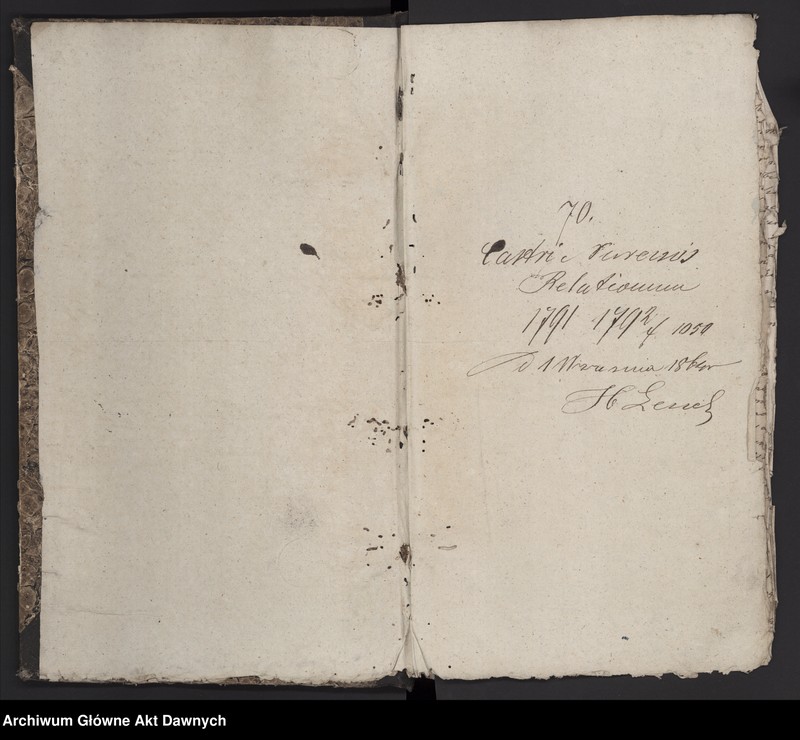 70.
Castri Surensis
Relationum
1791 1792 f 1050
D 1 Września 186
H Lench
Archiwum Główne Akt Dawnych